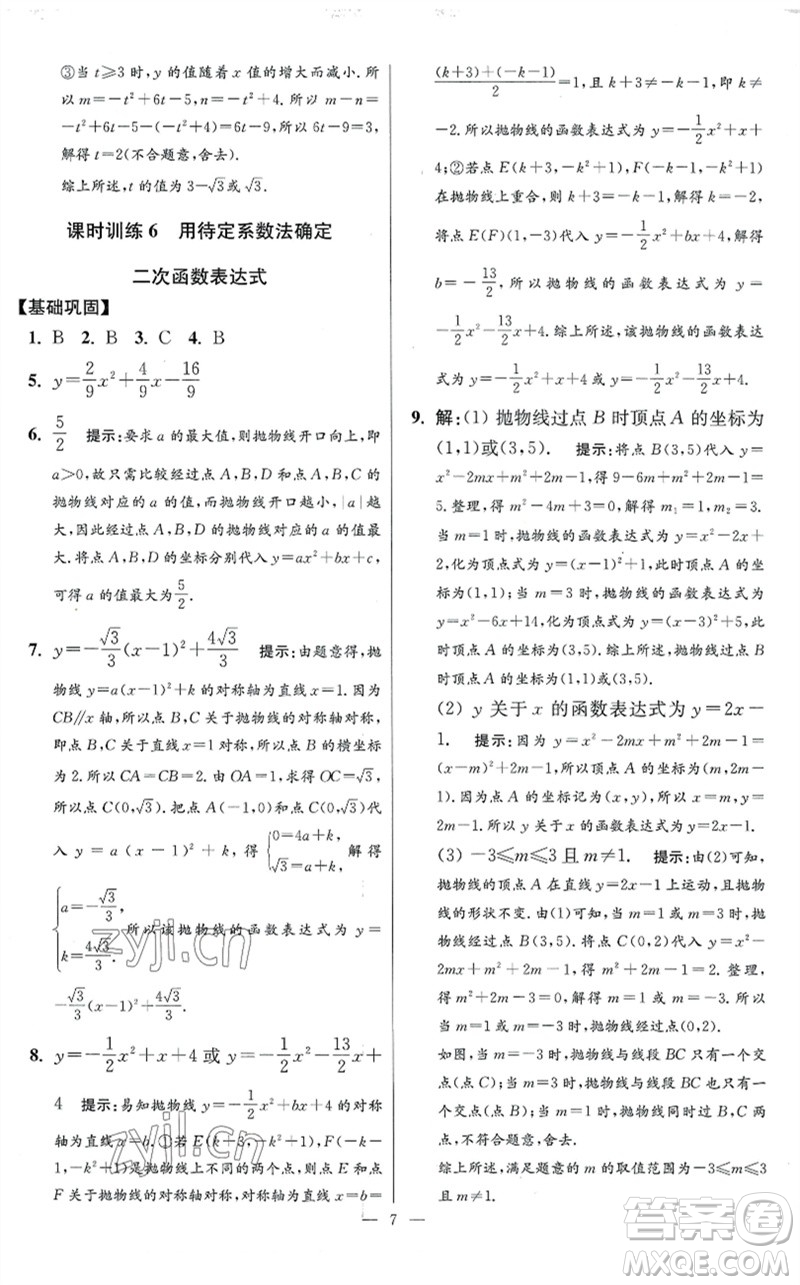 ③当 t≥3 时,y 的值随着 x 值的增大而减小. 所
以 m=−t²+6t−5,n=−t²+4t. 所以 m−n=
−t²+6t−5−(−t²+4t)=6t−9,所以 6t−9=3,
解得 t=2(不合题意,舍去).
综上所述,t 的值为 3−√3或 √3.
课时训练 6 用待定系数法确定
二次函数表达式
【基础巩固】
1. B 2. B 3. C 4. B
5. y=2/9x²+4/9x−16/9
6. 5/2 提示:要求 a 的最大值,则抛物线开口向上,即
a>0,故只需比较过点 A,B,D 和点 A,B,C 的
抛物线对应的 a 的值,而抛物线开口越小,|a|越
大,因此经过点 A,B,D 的抛物线对应的 a 的值最
大. 将点 A,B,D 的坐标分别代入 y=ax²+bx+c,
可得 a 的值最大为 5/2.
7. y=−√3/3(x−1)²+4√3/3 提示:由题意得,抛
物线 y=a(x−1)²+k 的对称轴为直线 x=1. 因为
CB//x 轴,所以点 B,C 关于抛物线对称轴对称,
即点 B,C 关于直线 x=1 对称,所以点 B 的横坐标
为 2. 所以 CA=CB=2. 由 OA=1,求得 OC=
√3. 所以点 C(0,√3). 把点 A(−1,0)和点 C(0,√3)代
入 y=a(x−1)²+k,得 {0=4a+k, √3=a+k. 解得
{a=−√3/3, k=4√3/3. 所以该抛物线的函数表达式为 y=
−√3/3(x−1)²+4√3/3.
8. y=−1/2x²+x+4 或 y=−1/2x²−13/2x+
4 提示:易知抛物线 y=−1/2x²+bx+4 的对称
轴为直线 x=b. ①若 E(k+3,−k²+1),F(−k−
1,−k²+1)是抛物线上不同的两个点,则点 E 和点
F 关于抛物线的对称轴对称,对称轴为直线 x=b=
((k+3)+(−k−1))/2=1,且 k+3≠−k−1,即 k≠
−2. 所以抛物线的函数表达式为 y=−1/2x²+x+
4;②若点 E(k+3,−k²+1),F(−k−1,−k²+1)
在抛物线上重合,则 k+3=−k−1,解得 k=−2,
将点 E(F)(1,−3)代入 y=−1/2x²+bx+4,解得
b=−13/2,所以抛物线的函数表达式为 y=
−1/2x²−13/2x+4. 综上所述,该抛物线的函数表达
式为 y=−1/2x²+x+4 或 y=−1/2x²−13/2x+4.
9. 解:(1) 抛物线过点 B 时顶点 A 的坐标为
(1,1)或(3,5). 提示:将点 B(3,5)代入 y=
x²−2mx+m²+2m−1,得 9−6m+m²+2m−1=
5. 整理,得 m²−4m+3=0,解得 m₁=1,m₂=3.
当 m=1 时,抛物线的函数表达式为 y=x²−2x+
2,化为顶点式为 y=(x−1)²+1,所以顶点 A 的坐
标为(1,1);当 m=3 时,抛物线的函数表达式为
y=x²−6x+14,化为顶点式为 y=(x−3)²+5,所
以顶点 A 的坐标为(3,5). 综上所述,抛物线过点 B
时顶点 A 的坐标为(1,1)或(3,5).
(2) y 关于 x 的函数表达式为 y=2x−
1. 提示:因为 y=x²−2mx+m²+2m−1=
(x−m)²+2m−1,所以抛物线的顶点 A(m,2m−
1). 因为点 A 的坐标记为(x,y),所以 x=m,y=
2m−1. 所以 y 关于 x 的函数表达式为 y=2x−1.
(3) −3≤m≤3 且 m≠1. 提示:由(2)可知,
抛物线的顶点 A 在直线 y=2x−1 上运动,且抛物
线的形状不变. 由(1)可知,当 m=1 或 3 时,抛物
线经过点 B(3,5). 将点 C(0,2)代入 y=x²−
2mx+m²+2m−1,得 m²+2m−1=2. 整理,得
m²+2m−3=0,解得 m=1 或 m=−3. 所以当
m=1 或 m=−3 时,抛物线经过点(0,2).
如图,当 m=−3 时,抛物线与线段 BC 只有一个交
点(点 C);当 m=3 时,抛物线与线段 BC 只有一
个交点(点 B);当 m=1 时,抛物线同时过 B,C 两
点,不符合题意,舍去.
综上所述,满足题意的 m 的取值范围为−3≤m≤3
且 m≠1.
— 7 —
zyjl.cn
zyjl.cn
答案卷
MXQE.COM